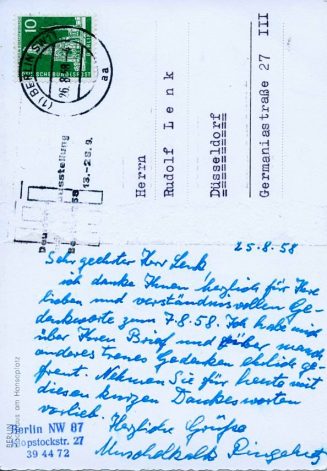 10
DEUTSCHE BUNDESPOST
(1) BERLIN SW
26.8.58
aa
usstellung
13.-28.9.
Herrn
Rudolf Lenk
Düsseldorf
Germaniastraße 27 III
25.8.58
Sehr geehrter Herr Lenk,
ich danke Ihnen herzlich für Ihre
lieben und verständnisvollen Ge-
dankworte zum 7.8.58. Ich habe mich
über Ihren Brief und
anderes treues Gedenken ehrlich ge-
freut. Nehmen Sie für heute mit
diesen kurzen Dankesworten
vorlieb. Herzliche Grüße
Muschelkalk Ringelnatz
BERLIN
am Hansaplatz
Berlin NW 87
Klopstockstr. 27
39 44 72